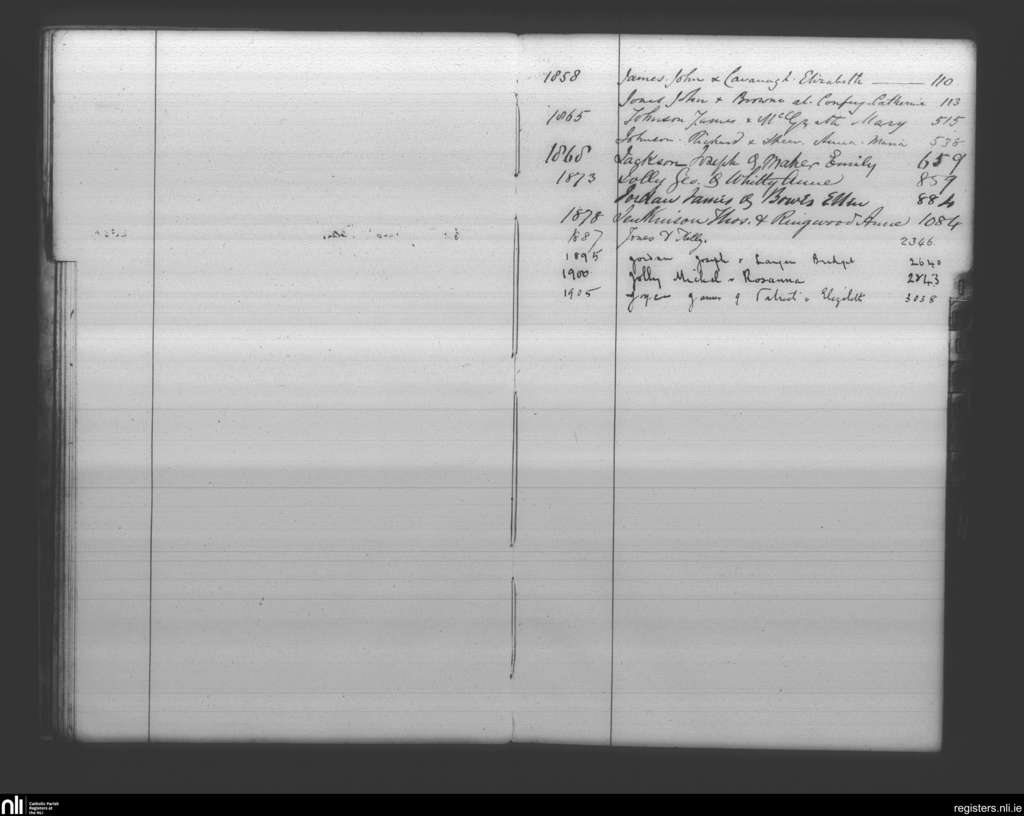 1858 James John & Cavanagh Elizabeth — 110
Jones John & Browne al. Confrey Catherine 113
1865 Johnson James & McGrath Mary 515
Johnson Richard & Anna Maria 535
1868 Jackson Joseph & Maher Emily 659
1873 Jolly Geo. & Whitty Anne 859
Jordan James & Bowes Ellen 884
1878 Jenkinson Thos. & Ringwood Anne 1084
1887 Jones & Tolly. 2346
1895 Jordan Joseph & Bridget 2640
1900 Jolly Michael & Rosanna 2843
1905 Joyce James & Elizabeth 3038
nli Catholic Parish
Registers at
the NLI
registers.nli.ie